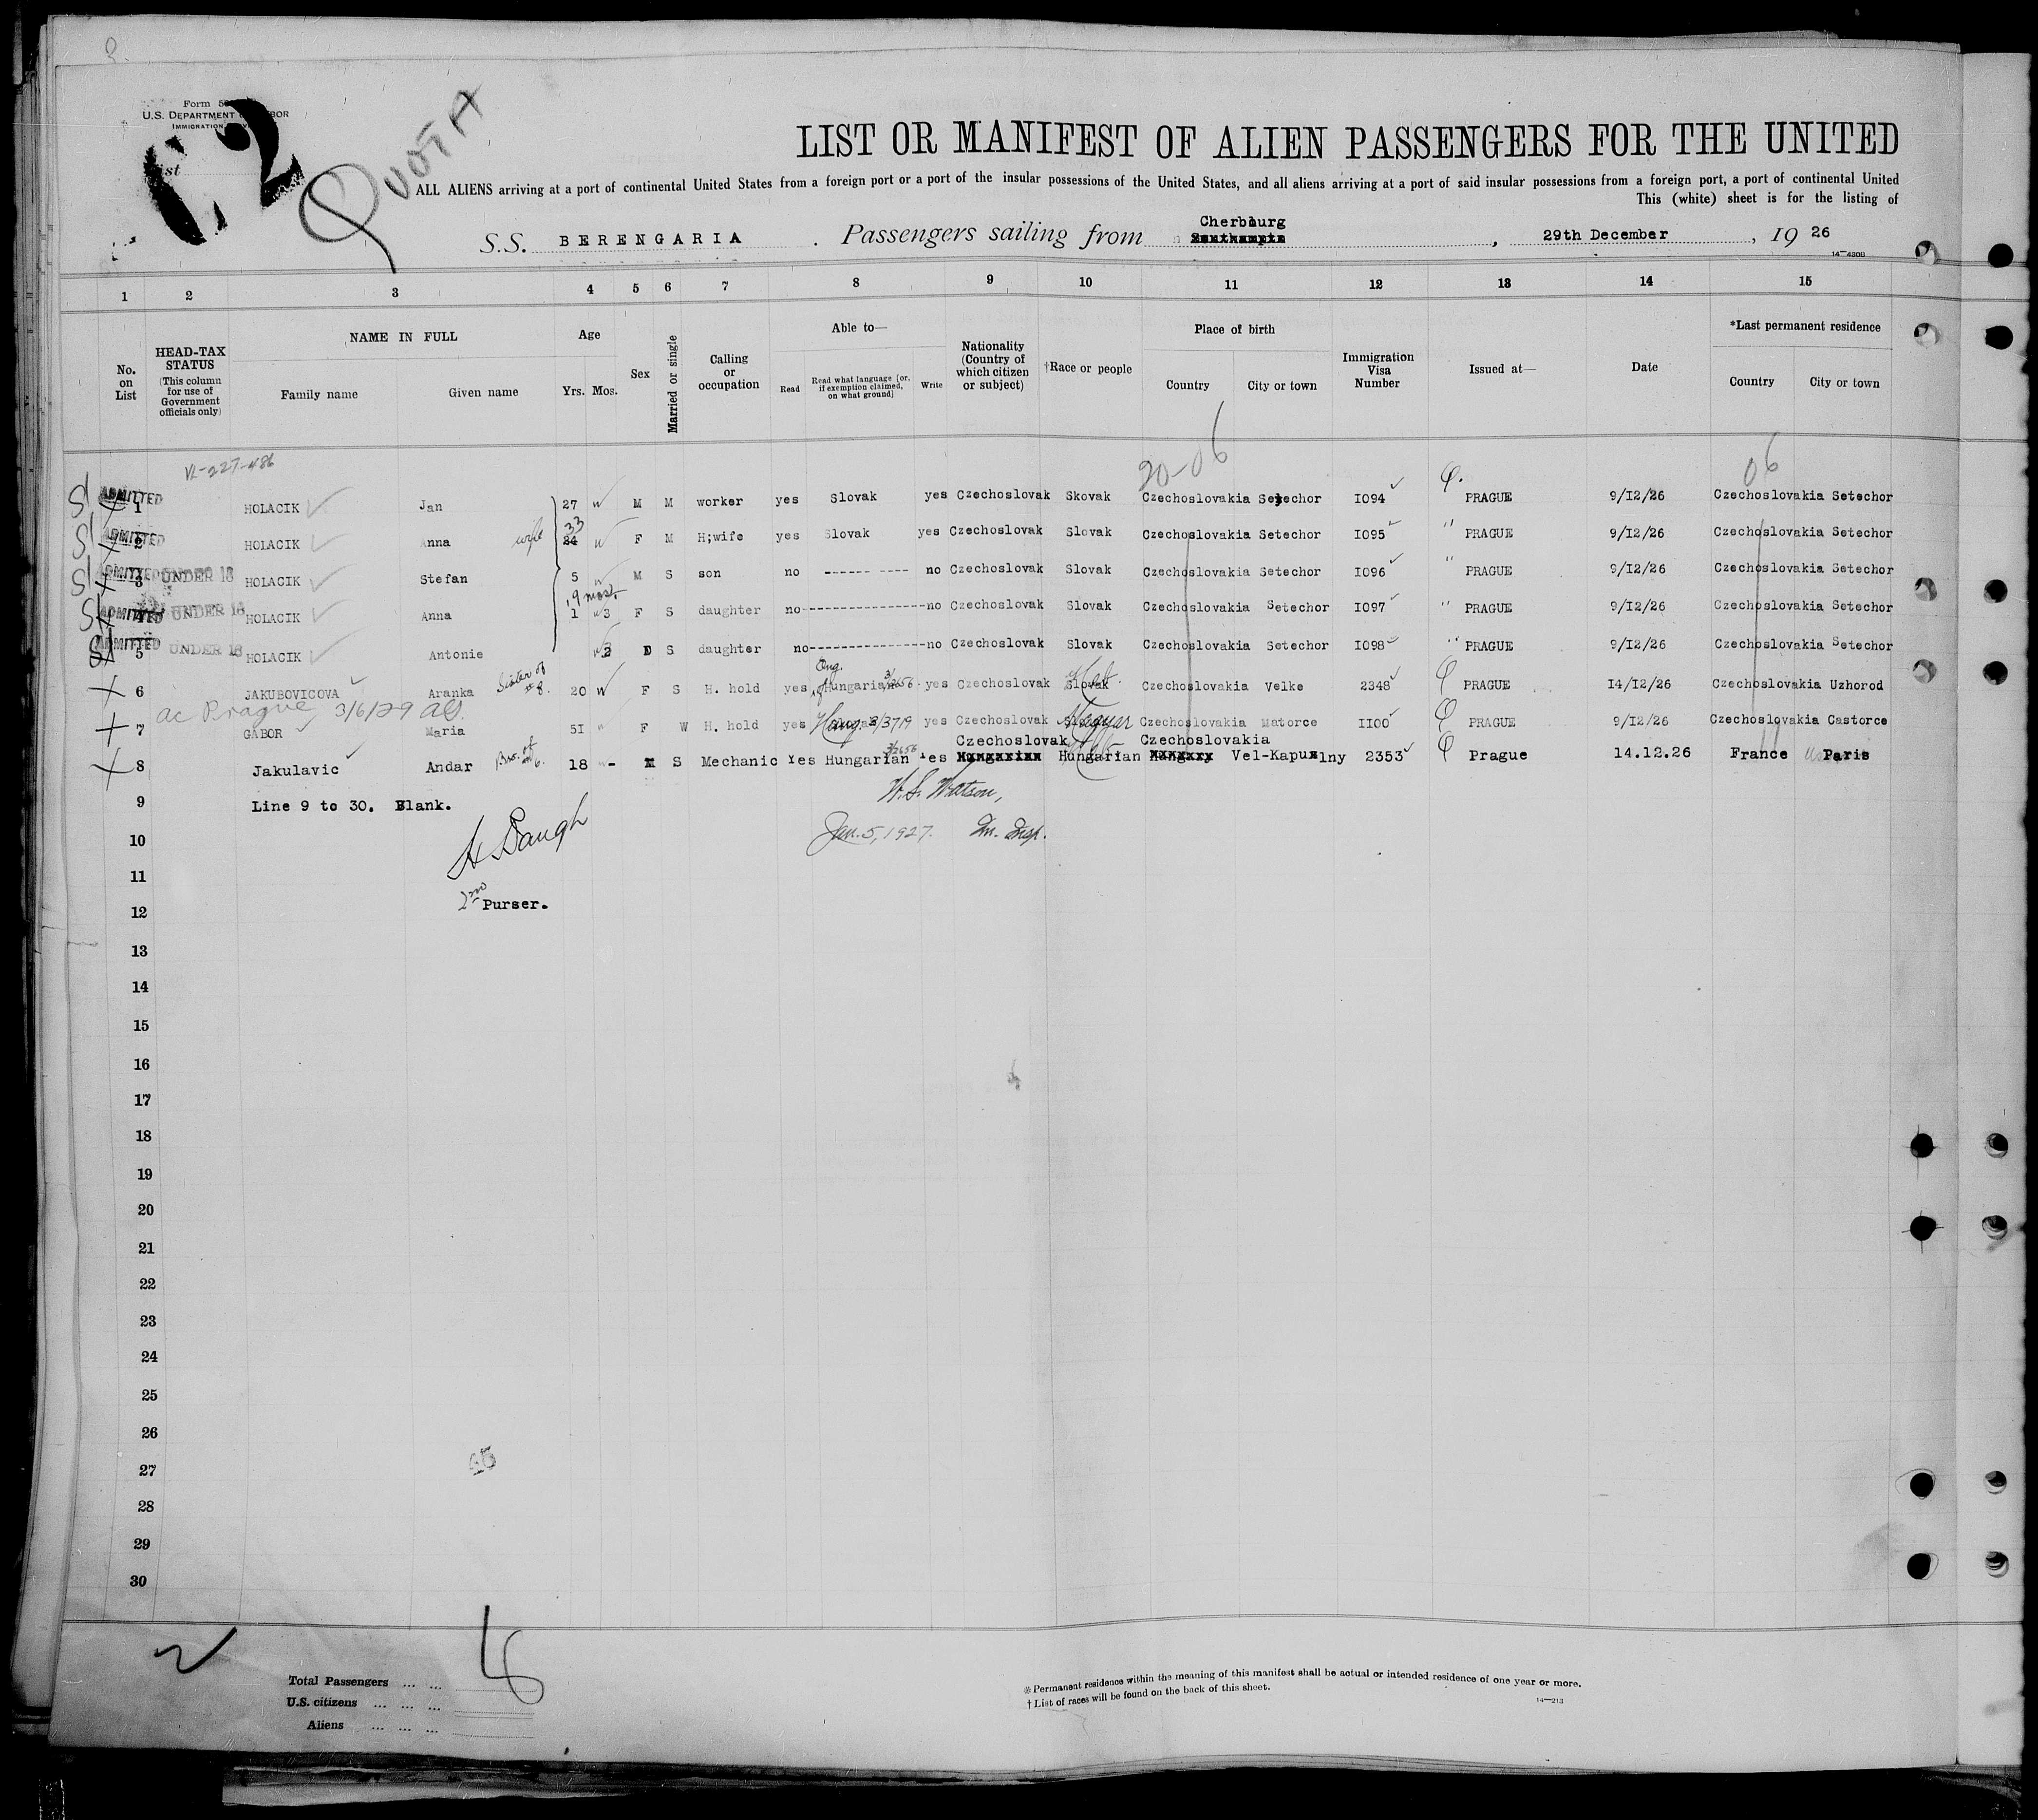 Form 5
U.S. DEPARTMENT
IMMIGRATION
2
QUOTA
LIST OR MANIFEST OF ALIEN PASSENGERS FOR THE UNITED
ALL ALIENS arriving at a port of continental United States from a foreign port or a port of the insular possessions of the United States, and all aliens arriving at a port of said insular possessions from a foreign port, a port of continental United
This (white) sheet is for the listing of
Cherbourg
S.S. BERENGARIA . Passengers sailing from Southampton , 29th December , 19 26
14—4300
1 2 3 4 5 6 7 8 9 10 11 12 13 14 15
No. on List HEAD-TAX STATUS (This column for use of Government officials only) NAME IN FULL Family name Given name Age Yrs. Mos. Sex Married or single Calling or occupation Able to— Read Read what language [or, if exemption claimed, on what ground] Write Nationality (Country of which citizen or subject) †Race or people Place of birth Country City or town Immigration Visa Number Issued at— Date *Last permanent residence Country City or town
20-06 06
VI-227-486
ADMITTED 1 HOLACIK Jan 27 M M worker yes Slovak yes Czechoslovak Skovak Czechoslovakia Setechor 1094 PRAGUE 9/12/26 Czechoslovakia Setechor
33
ADMITTED 2 HOLACIK Anna wife 24 F M H;wife yes Slovak yes Czechoslovak Slovak Czechoslovakia Setechor 1095 " PRAGUE 9/12/26 Czechoslovakia Setechor
ADMITTED 3 UNDER 18 HOLACIK Stefan 5 M S son no ------ ---- no Czechoslovak Slovak Czechoslovakia Setechor 1096 " PRAGUE 9/12/26 Czechoslovakia Setechor
9 mos.
ADMITTED 4 UNDER 18 HOLACIK Anna 1 3 F S daughter no----------------no Czechoslovak Slovak Czechoslovakia Setechor 1097 " PRAGUE 9/12/26 Czechoslovakia Setechor
ADMITTED 5 UNDER 18 HOLACIK Antonie S daughter no---------------no Czechoslovak Slovak Czechoslovakia Setechor 1098 " PRAGUE 9/12/26 Czechoslovakia Setechor
Eng.
6 JAKUBOVICOVA Aranka Sister of #8. 20 W F S H. hold yes Hungarian yes Czechoslovak Slovak Heb. Czechoslovakia Velke 2348 PRAGUE 14/12/26 Czechoslovakia Uzhorod
ac Prague, 3/6/29
7 GABOR Maria 51 F W H. hold yes Hung. yes Czechoslovak Magyar Czechoslovakia Matorce 1100 PRAGUE 9/12/26 Czechoslovakia Castorce
Czechoslovak Czechoslovakia
8 Jakulavic Andar Bro. of 6. 18 - M S Mechanic Yes Hungarian Yes Hungarian Hungarian Hungary Vel-Kapuxlny 2353 Prague 14.12.26 France Paris
9 Line 9 to 30. Blank.
W.S. Watson,
10 H Baugh Jan. 5, 1927. Im. Insp.
11
12 2nd Purser.
13
14
15
16
17
18
19
20
21
22
23
24
25
26
27
28
29
30
Total Passengers ... ...
U.S. citizens ... ... ...
Aliens ... ... ...
* Permanent residence within the meaning of this manifest shall be actual or intended residence of one year or more.
† List of races will be found on the back of this sheet.
14—213